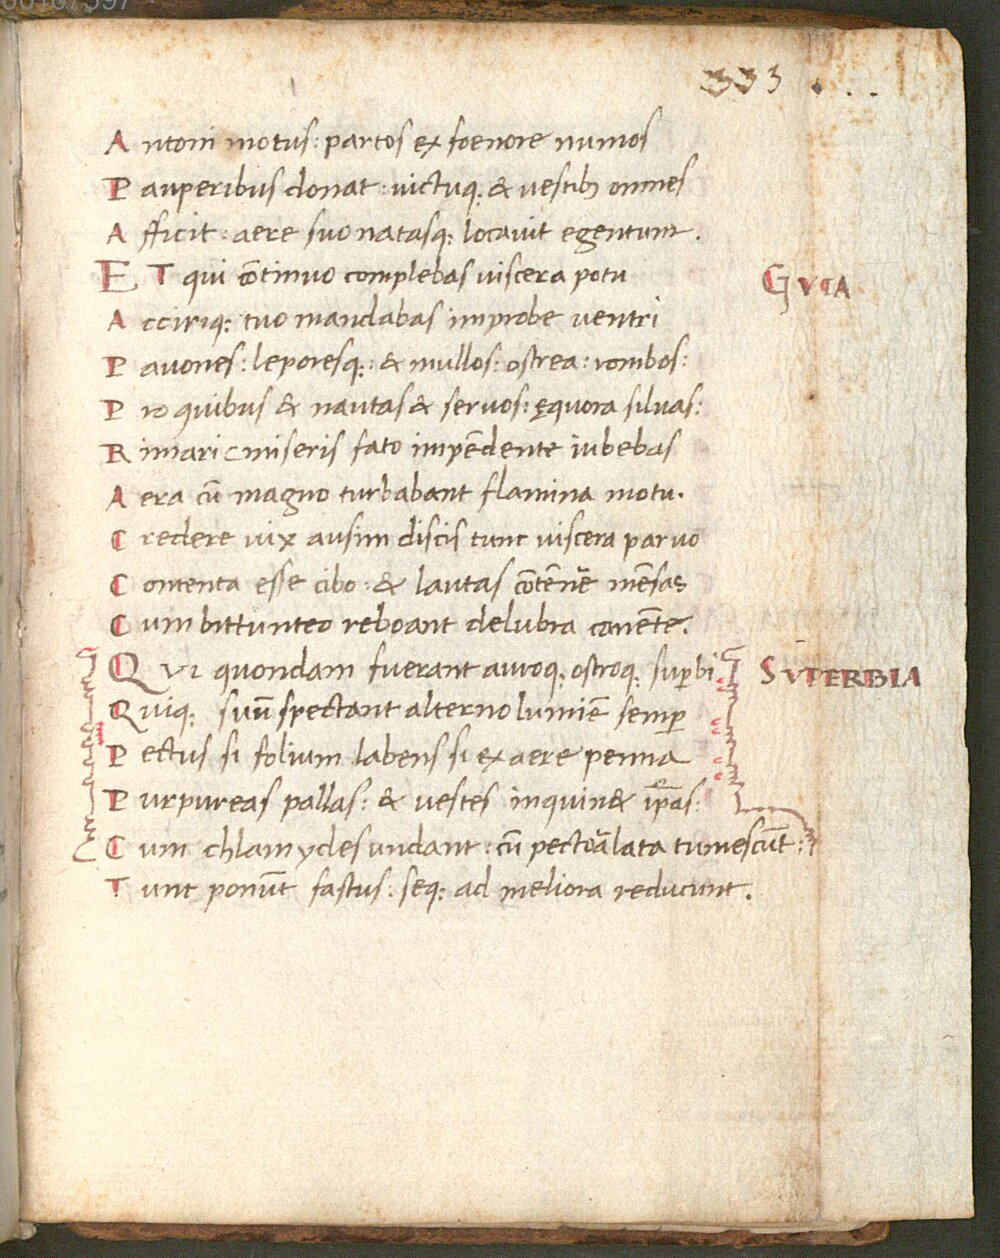 333
Antoni motus: partos ex foenore numos
Pauperibus donat: uictuq; & uestib; omnes
Afficit: aere suo natasq; locauit egentum.
ET qui cōtinuo complebas uiscera potu
GVLA
Acciriq; tuo mandabas improbe uentri
Pauones: leporesq;: & mullos: ostrea: rombos:
Pro quibus & nautas & seruos: ęquora siluas:
Rimari miseris fato impēdente iubebas
Aera cū magno turbabant flamina motu.
Credere uix ausim discis tunc uiscera paruo
Contenta esse cibo: & lautas cōtēnē mēsas
Cum bittunteo reboant delubra canēte.
QVI quondam fuerant auroq; ostroq; supbi
SVPERBIA
Quiq; suū spectant alterno lumiē semp
Pectus si folium labens si ex aere penna
Purpureas pallas: & uestes inquin& ip̄as:
Cum chlamydes undant: cū pectoā lata tumescūt:
Tunt ponūt fastus: seq; ad meliora reducunt.